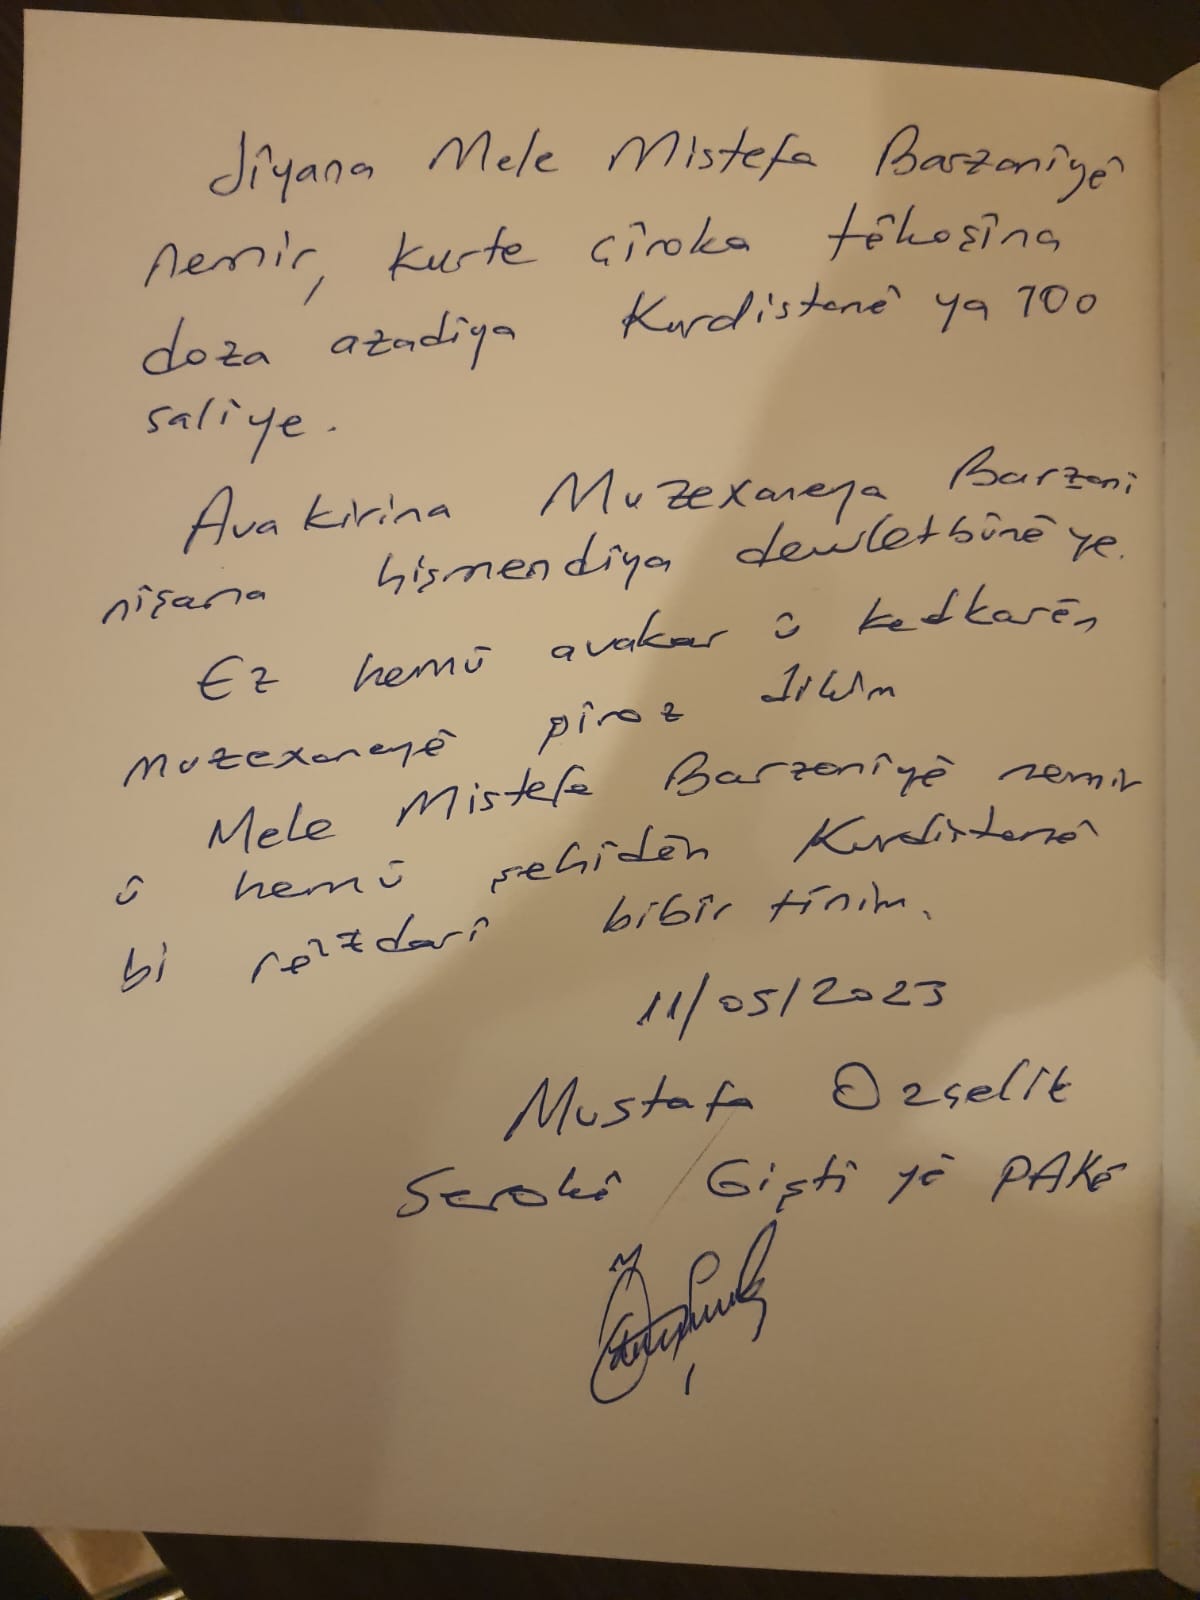 Jîyana Mele Mistefa Barzanîyê
nemir, kurte çîroka têkoşîna
doza azadîya Kurdistanê ya 100
salîye.
Avakirina Muzexaneya Barzani
nîşana hişmendîya dewletbûnê ye.
Ez hemû avakar û kedkarên
muzexaneyê pîroz dikim
Mele Mistefa Barzanîyê nemir
û hemû şehîdên Kurdistanê
bi rêzdarî bibîr tînim.
11/05/2023
Mustafa Ozçelik
Serokê Giştî yê PAKê